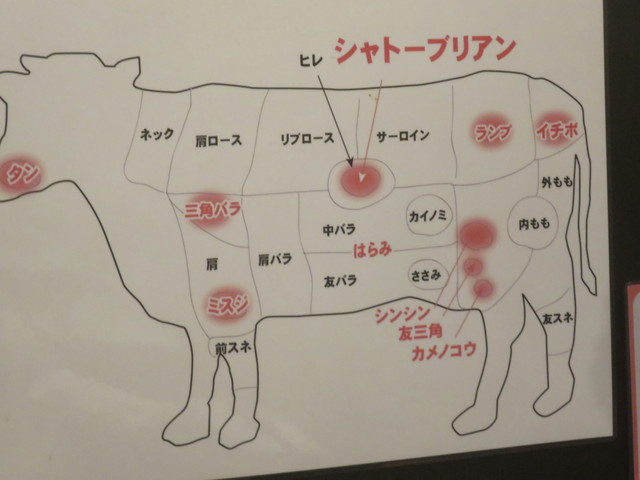 シャトーブリアン
ヒレ
ネック
肩ロース
リブロース
サーロイン
ランプ
イチボ
タン
三角バラ
外もも
カイノミ
内もも
中バラ
はらみ
肩
肩バラ
友バラ
ささみ
ミスジ
シンシン
友三角
カメノコウ
友スネ
前スネ